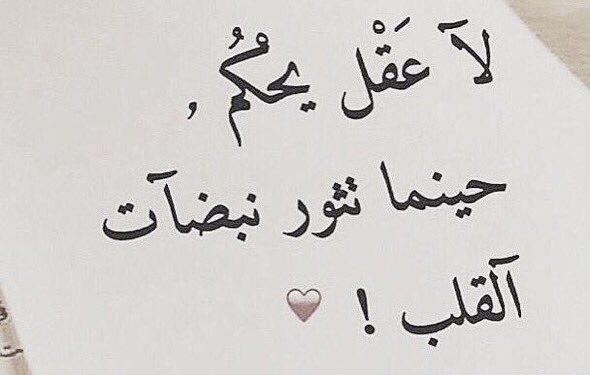 لآ عَقْل يحكُمُ ,
حينما تثور نبضآت
آلقلب !